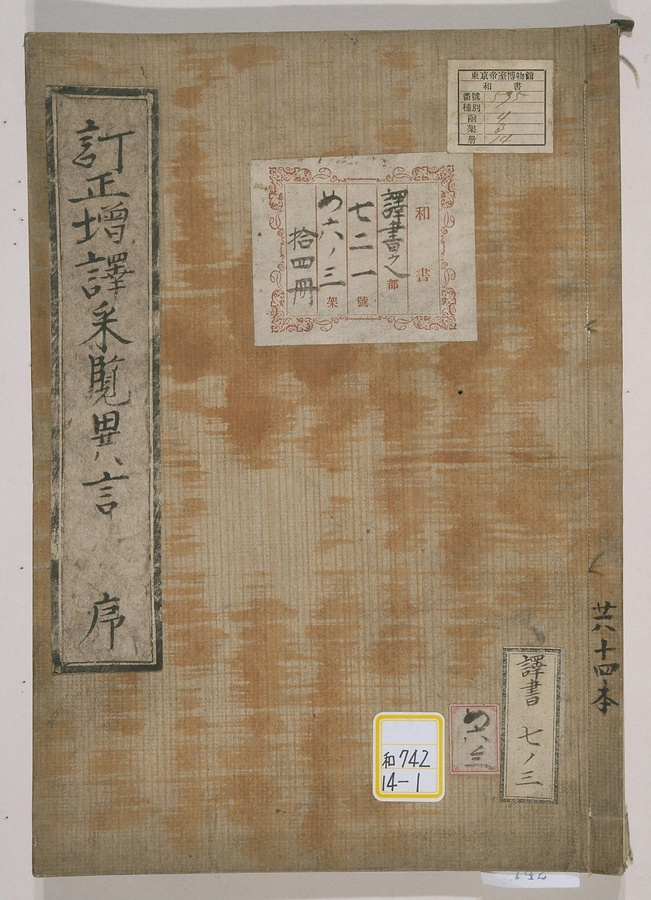 訂正增譯采覧異言 序
東京帝室博物館
和書
番號 535
種別 1
函 4
架 3
册 14
和書
譯書之部
七二一號
め六ノ三架
拾四冊
共十四本
譯書 七ノ三
め六三
和742
14-1
142